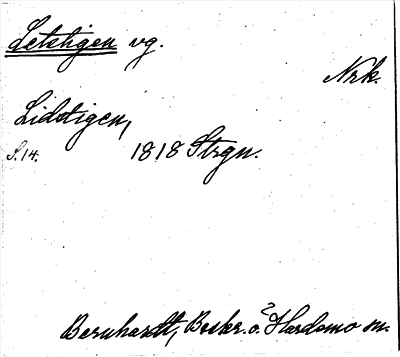 Letstigen vg.
Nrk.
Lidstigen,
S. 14. 1818 Strgn.
Bernhardt, Beskr. o. Hardemo sn.